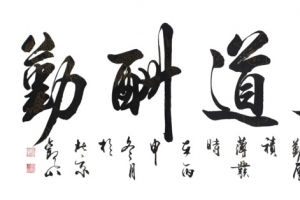 道酬勤
積
薄發
時
在丙
申
冬月
於
北京